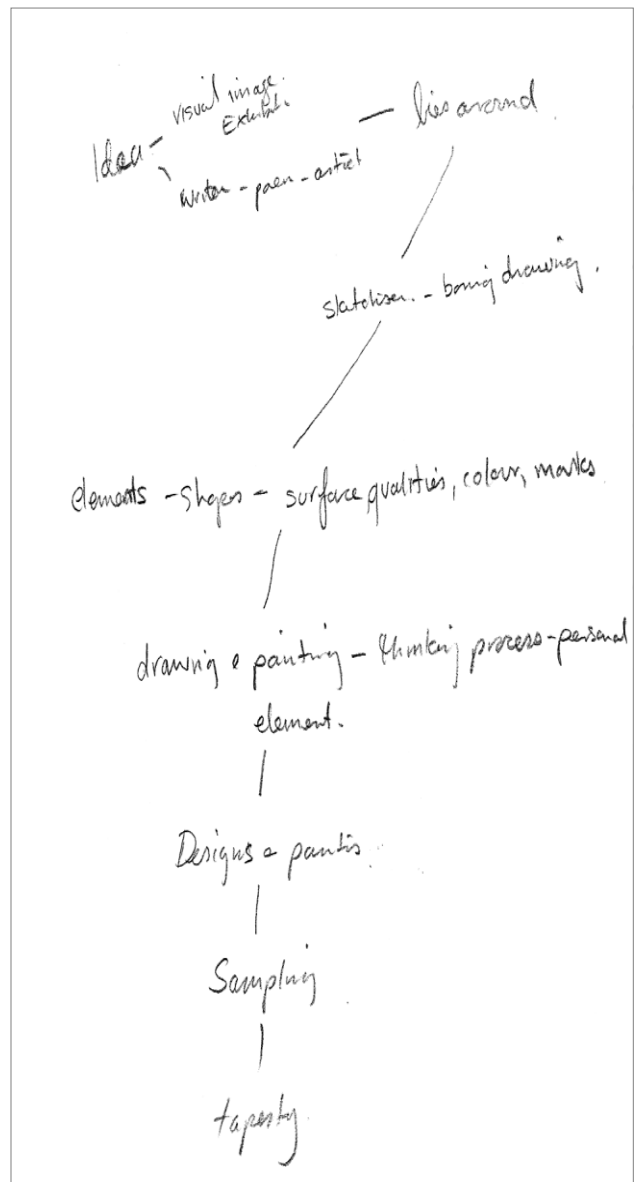 Idea - visual image.
Exhibit.
- lies around.
writer - poem - artist
- boring drawing.
elements - shapes - surface qualities, colour, marks
drawing & painting - thinking process - personal
element.
Designs &
Sampling
tapesty.